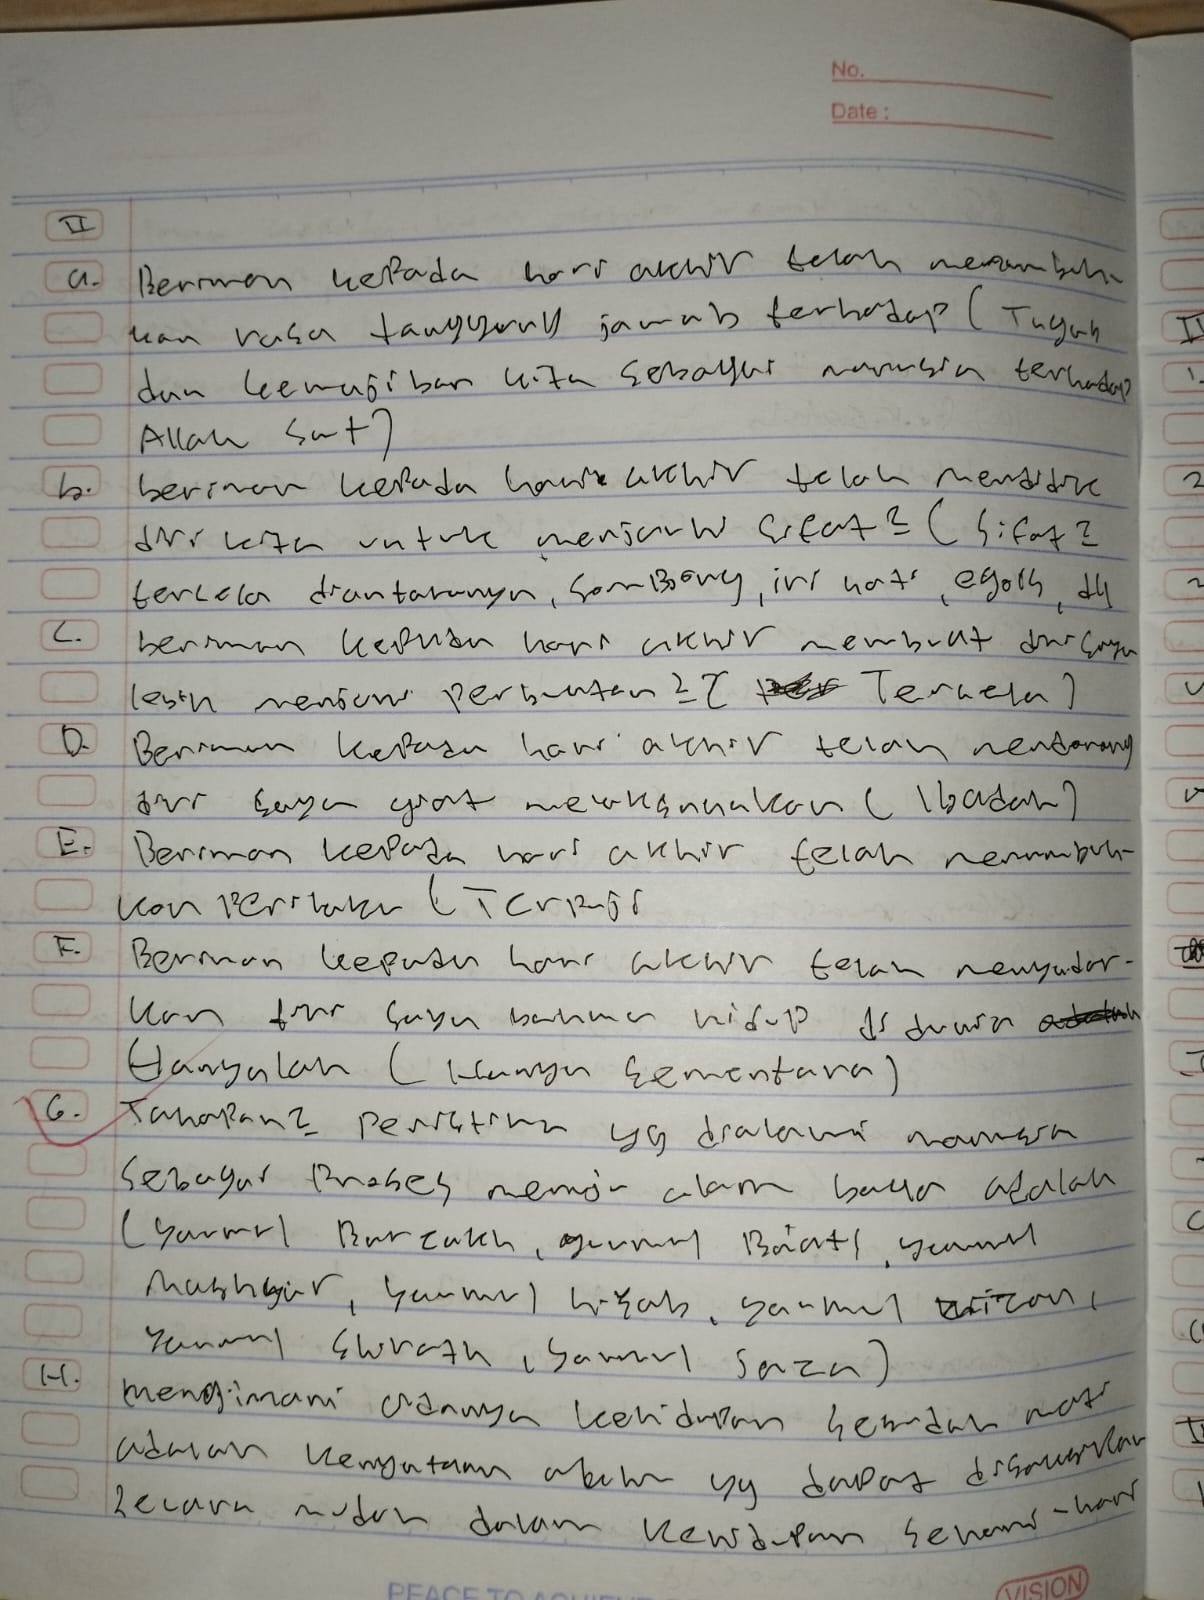 No.
Date :
II
a. Beriman kepada hari akhir telah menumbuh-
kan rasa tanggung jawab terhadap (Tugas
dan kewajiban kita sebagai manusia terhadap
Allah Swt)
b. beriman kepada hari akhir telah mendidik
diri kita untuk menjauhi sifat2 (Sifat2
tercela diantaranya, Sombong, iri hati, egois, dll
C. beriman kepada hari akhir membuat diri saya
lebih menjauhi perbuatan2 ( Tercela)
D. Beriman kepada hari akhir telah mendorong
diri saya giat melaksanakan (Ibadah)
E. Beriman kepada hari akhir telah menumbuh-
kan Perilaku (Terpuji
F. Beriman kepada hari akhir telah menyadar-
kan diri saya bahwa hidup di dunia
Hanyalah (Hanya Sementara)
G. Tahapan2 peristiwa yg dialami manusia
Sebagai Proses menuju alam baqa adalah
(yaumul Barzakh, yaumul Ba'ats, yaumul
Mahsyar, yaumul hizab, yaumul mizan,
yaumul Shirath, yaumul Jaza)
H. mengimani adanya kehidupan sesudah mati
adalah kenyataan yg dapat disaksikan
Secara mudah dalam kehidupan sehari-hari
PEACE TO
VISION